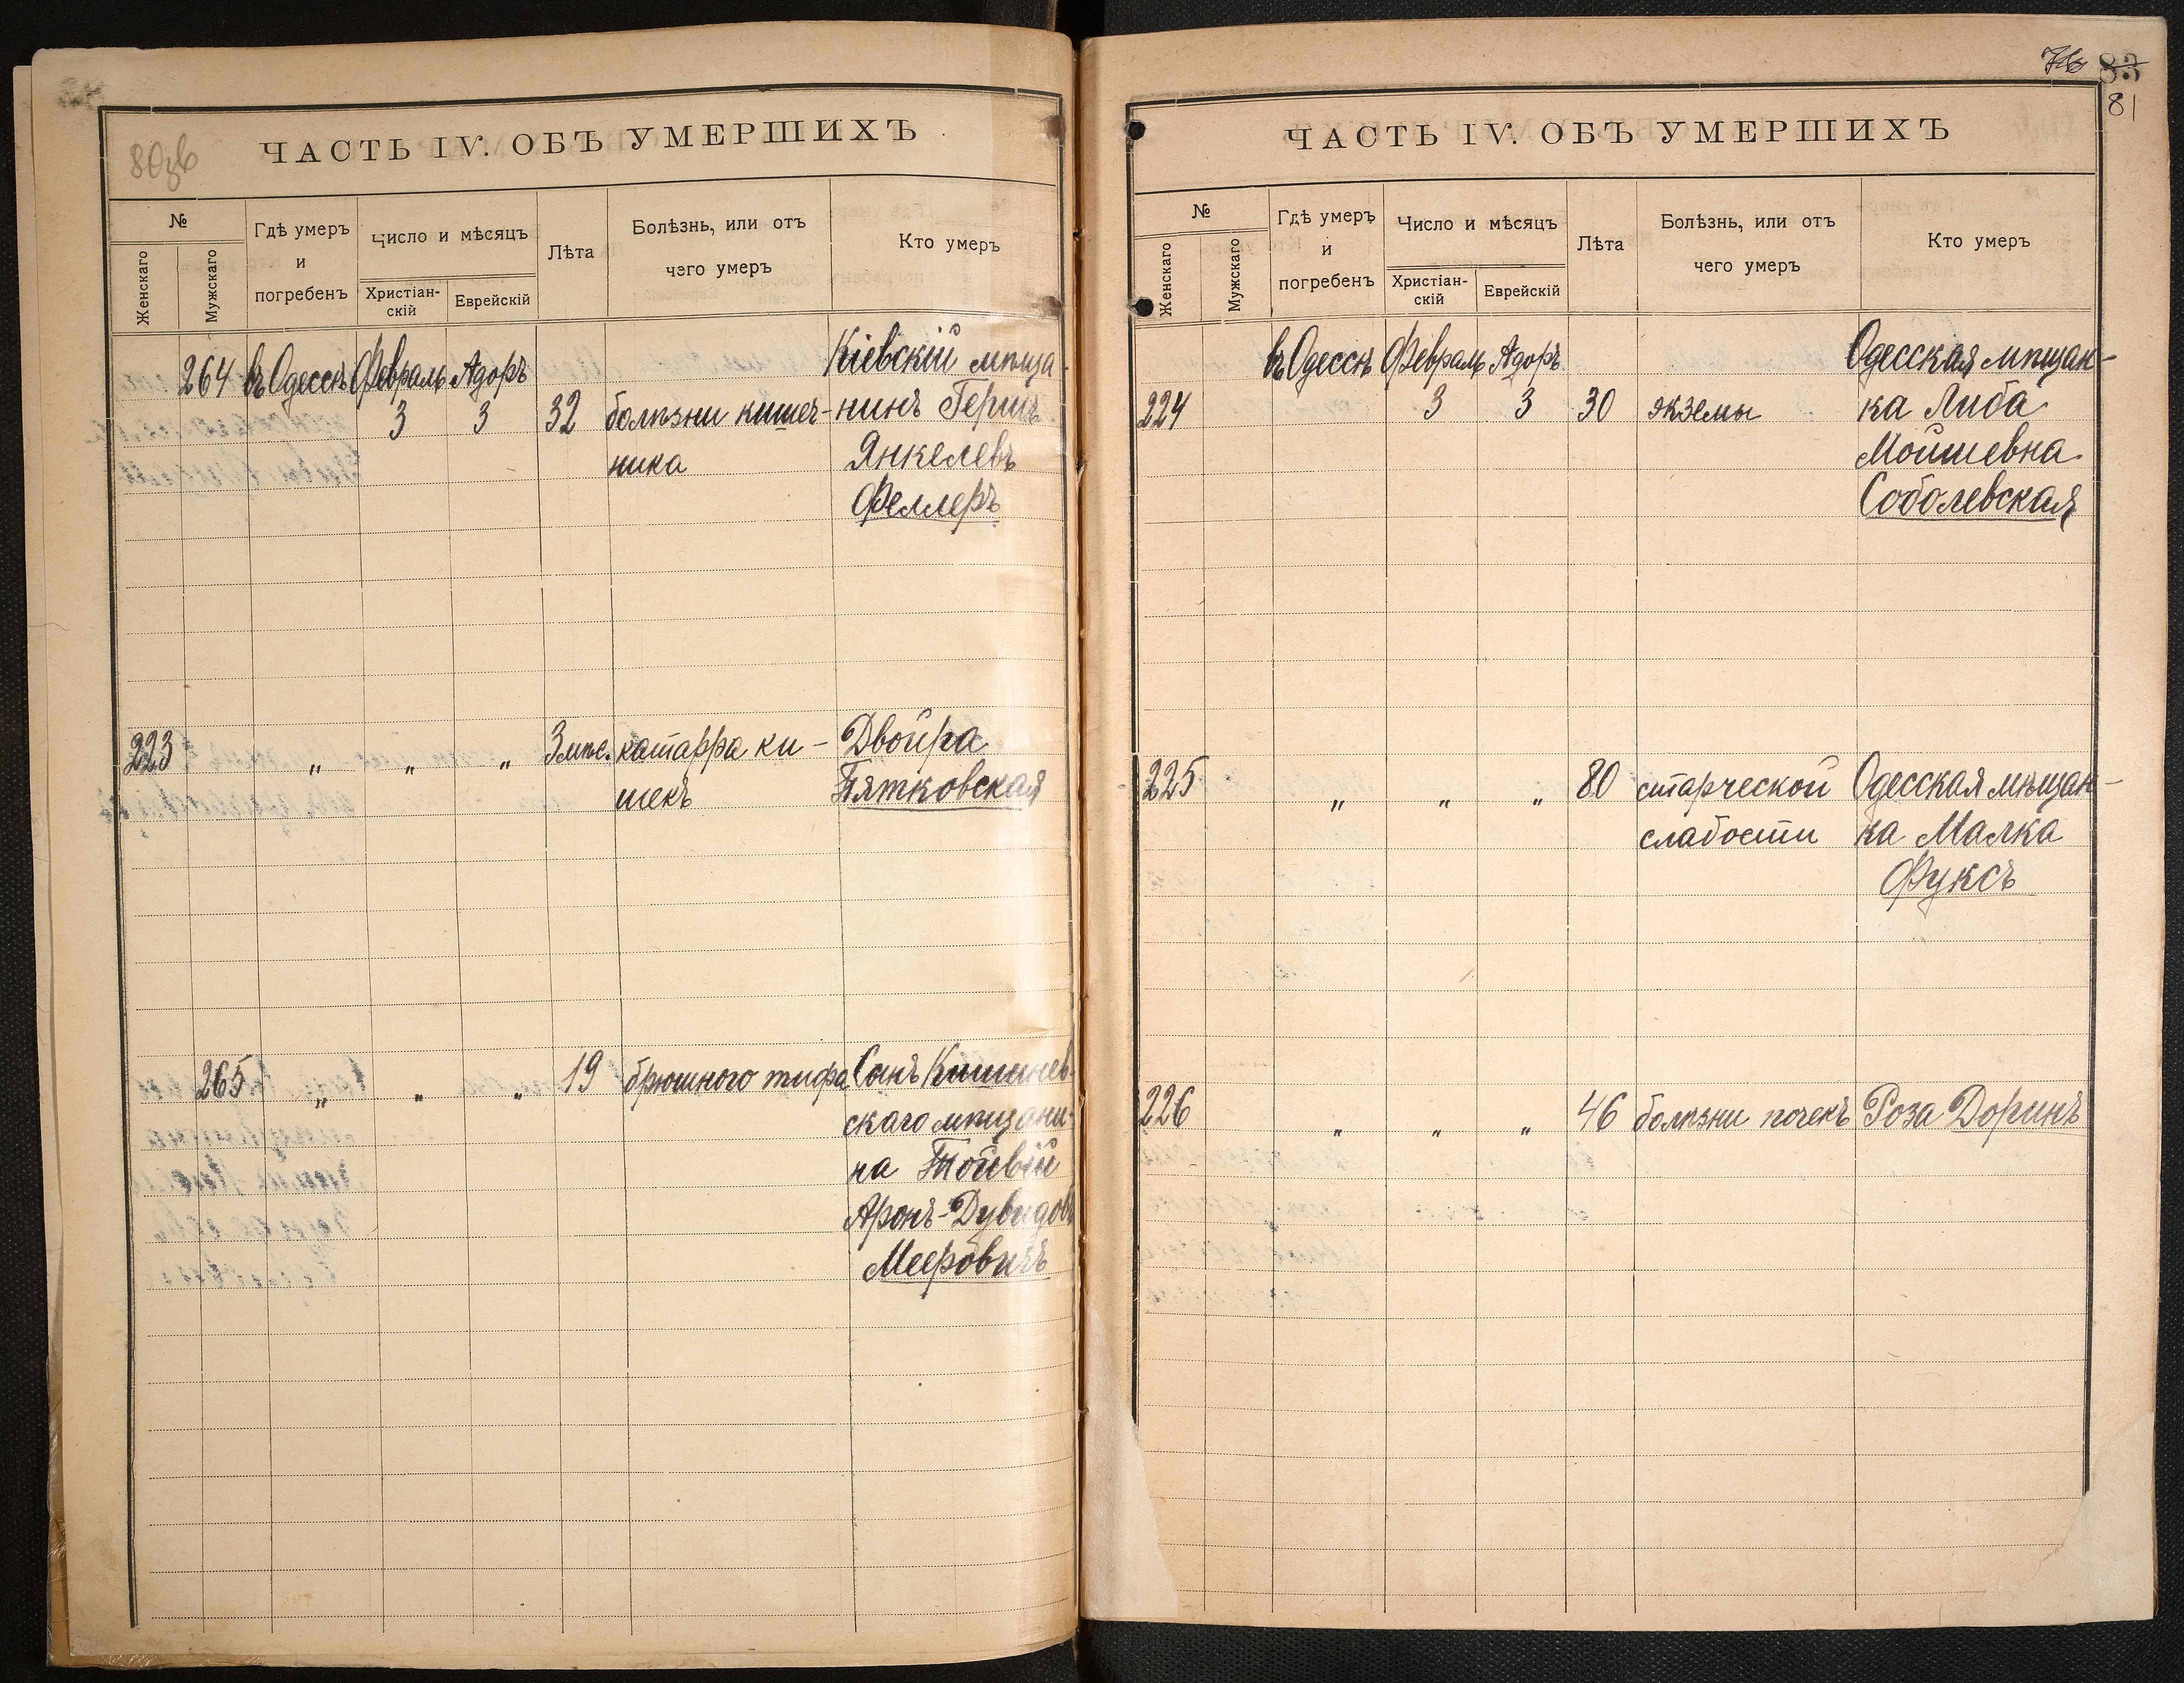 80зв
ЧАСТЬ IV. ОБЪ УМЕРШИХЪ
№
Женскаго
Мужскаго
Гдѣ умеръ
и
погребенъ
Число и мѣсяцъ
Христіан-
скій
Еврейскій
Лѣта
Болѣзнь, или отъ
чего умеръ
Кто умеръ
264 въ Одессѣ Февраль Адоръ Кіевскій мѣща-
3 3 32 болѣзни кишеч- нинъ Гершъ
ника Янкелевъ
Феллеръ
223 " " " 3 мѣс. катарра ки- Двойра
шекъ Пятковская
265 " " " 19 брюшного тифа Сынъ Кишинев-
скаго мѣщани-
на Тойвій
Аронъ-Дувидовъ
Мееровичъ
76 83
81
ЧАСТЬ IV. ОБЪ УМЕРШИХЪ
№
Женскаго
Мужскаго
Гдѣ умеръ
и
погребенъ
Число и мѣсяцъ
Христіан-
скій
Еврейскій
Лѣта
Болѣзнь, или отъ
чего умеръ
Кто умеръ
въ Одессѣ Февраль Адоръ Одесская мѣщан-
224 3 3 30 экземы ка Либа
Мойшевна
Соболевская
225 " " " 80 старческой Одесская мѣщан-
слабости ка Малка
Фуксъ
226 " " " 46 болѣзни почекъ Роза Доринъ